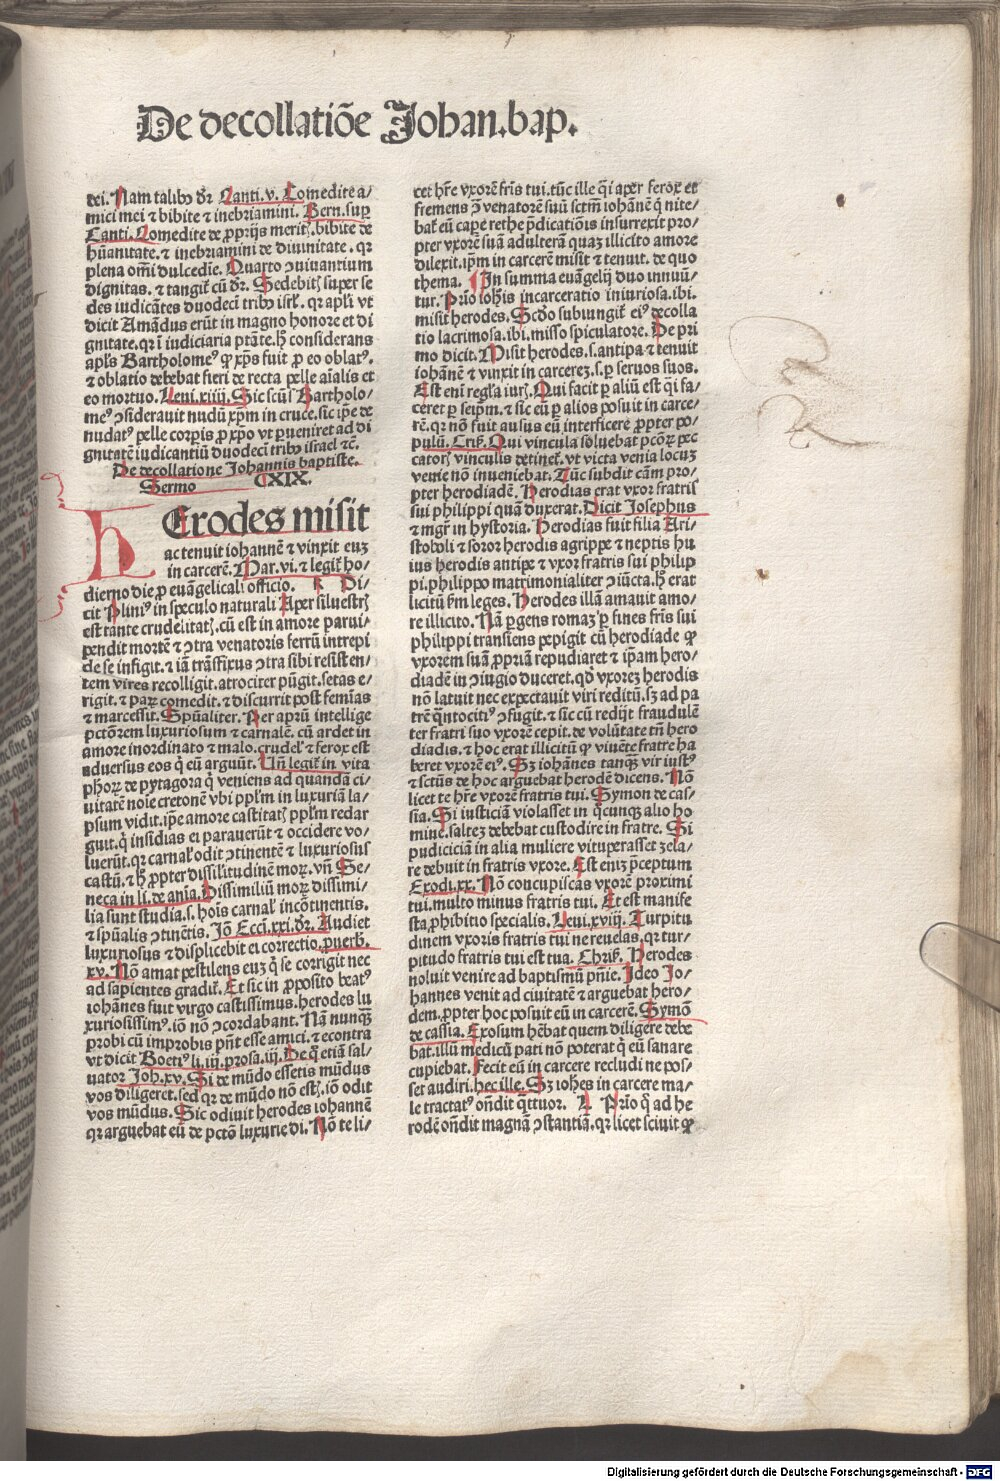 De decollatiōe Johan.bap.
dei. Nam talibꝰ dr̄ Canti. v. Comedite a/
mici mei ⁊ bibite ⁊ inebriamini. Bern. suꝑ
Canti. Comedite de ꝓprijs meritꝭ. bibite de
hūanitate. ⁊ inebriamini de diuinitate. qꝛ
plena om̄i dulcedie. Quarto ↄuiuantium
dignitas. ⁊ tangiť cū dr̄. Sedebitꝭ super se
des iudicātes duodeci tribꝰ isrľ. qꝛ apľi vt
dicit Amādus erūt in magno honore et di
gnitate. qꝛ ī iudiciaria ptāte. hꝫ considerans
apľs Bartholomeꝰ ꝙ xp̄s fuit ꝓ eo oblatꝰ.
⁊ oblatio debebat fieri de recta pelle aīalis et
eo mortuo. Leui. xiiij. Sic scūs Bartholo-
meꝰ ↄsiderauit nudū xp̄m in cruce. sic ip̄e de
nudatꝰ pelle corꝑis ꝓ xp̄o vt ꝑueniret ad di
gnitatē iudicantiū duodeci tribꝰ israel ⁊c̄.
De decollatione Johannis baptiste.
Sermo CXIX.
hErodes misit
ac tenuit iohannē ⁊ vinxit euꝫ
in carcerē. Mar. vi. ⁊ legiť ho/
dierno die ꝓ euāgelicali officio. Di-
cit Pliniꝰ in speculo naturali Aper siluestrꝭ
est tante crudelitatꝭ. cū est in amore parui/
pendit mortē ⁊ ↄtra venatoris ferrū intrepi
de se infigit. ⁊ iā trāsfixus ↄtra sibi resisten/
tem vires recolligit. atrociter pūgit. setas e/
rigit. ⁊ paꝝ comedit. ⁊ discurrit post femīas
⁊ marcessit. Spūaliter. Per aprū intellige
pctōrem luxuriosum ⁊ carnalē. cū ardet in
amore inordinato ⁊ malo. crudeľ ⁊ ferox est
aduersus eos q̄ eū arguūt. Vn̄ legiť in vita
phoꝝ de pytagora ꝙ veniens ad quandā ci/
uitatē noīe cretonē vbi ppľm in luxuriā la/
psum vidit. ip̄e amore castitatꝭ ppľm redar
guit. q̄ insidias ei parauerūt ⁊ occidere vo/
luerūt. qꝛ carnaľ odit ↄtinentē ⁊ luxuriosus
castū. ⁊ hꝫ ꝓpter dissilitudinē moꝝ. vn̄ Se-
neca in li. de aīa. Dissimiliū moꝝ dissimi/
lia sunt studia. s. hoīs carnaľ incōtinentis.
⁊ spūalis ↄtinētis. Jō Eccī. xxi. dr̄. Audiet
luxuriosus ⁊ displicebit ei correctio. ꝓuerb.
xv. Nō amat pestilens euꝫ q̄ se corrigit nec
ad sapientes gradiť. Et sic in ꝓposito beatꝰ
iohānes fuit virgo castissimus. herodes lu
xuriosissimꝰ. iō nō ↄcordabant. Nā nunꝙ̄
probi cū improbis pn̄t esse amici. ⁊ econtra
vt dicit Boetiꝰ li. iij. prosa. iij. De q̄ etiā sal/
uator Joh. xv. Si de mūdo essetis mūdus
vos diligeret. sed qꝛ de mūdo nō estꝭ. iō odit
vos mūdus. Sic odiuit herodes iohannē
qꝛ arguebat eū de pctō luxurie di. Nō te li/
cet hr̄e vxorē fr̄is tui. tūc ille q̄i aper ferox et
fremens ꝓ venatorē suū sctm̄ iohānē q̄ nite/
bať eū capere rethe p̄dicatiōis insurrexit pro/
pter vxorē suā adulterā quaꝫ illicito amore
dilexit. ip̄m in carcerē misit ⁊ tenuit. de quo
thema. ¶ In summa euāgelij duo innuū/
tur. Prīo ioh̄is incarceratio iniuriosa. ibi.
misit herodes. Scd̄o subiungiť eiꝰ decolla
tio lacrimosa. ibi. misso spiculatore. De pri
mo dicit. Misit herodes. s. antipa ⁊ tenuit
iohānē ⁊ vinxit in carcereꝫ. s. ꝑ seruos suos.
Est enī regľa iurꝭ. Qui facit ꝑ aliū est q̄i fa/
ceret ꝑ seip̄m. ⁊ sic eū ꝑ alios posuit in carce/
rē. qꝛ nō fuit ausus eū interficere ꝓpter po-
pulū. Criſ. Qui vincula soluebat pctōꝝ pec
catorꝭ vinculis detineť. vt victa venia locuꝫ
venie nō inueniebat. Tūc subdit cām pro/
pter herodiadē. Herodias erat vxor fratris
sui philippi quā duxerat. Dicit Josephus
⁊ mgr̄ in hystoria. Herodias fuit filia Ari/
stoboli ⁊ soror herodis agrippe ⁊ neptis hu
ius herodis antipe ⁊ vxor fratris sui philip
pi. philippo matrimonialiter ↄiūcta. hꝫ erat
licitū ẜm leges. Herodes illā amauit amo/
re illicito. Nā ꝑgens romaꝫ ꝑ fines fr̄is sui
philippi transiens pepigit cū herodiade ꝙ
vxorem suā ꝓpriā repudiaret ⁊ ip̄am hero/
diadē in ↄiugio duceret. qd̓ vxoreꝫ herodis
nō latuit nec expectauit viri reditū. sꝫ ad pa
trē q̄ntocitiꝰ ↄfugit. ⁊ sic cū redijt fraudulē
ter fratri suo vxorē cepit. de volūtate tn̄ hero
diadis. ⁊ hoc erat illicitū ꝙ viuēte fratre ha
beret vxorē eiꝰ. Sꝫ iohānes tanqꝫ vir iustꝰ
⁊ sctūs de hoc arguebat herodē dicens. Nō
licet te hr̄e vxorē fratris tui. Symon de cas/
sia. Si iusticiā violasset in q̄cunqꝫ alio ho
mine. salteꝫ debebat custodire in fratre. Si
pudiciciā in alia muliere vituperasset zela/
re debuit in fratris vxore. Est eniꝫ p̄ceptum
Exodi. xx. Nō concupiscas vxorē proximi
tui. multo minus fratris tui. Et est manife
sta ꝓhibitio specialis. Leui. xviij. Turpitu
dinem vxoris fratris tui ne reuelas. qꝛ tur/
pitudo fratris tui est tua. Chriſ. Herodes
noluit venire ad baptismū pn̄ie. Ideo Jo/
hannes venit ad ciuitatē ⁊ arguebat hero/
dem. ꝓpter hoc posuit eū in carcerē. Symō
de cassia. Exosum hēbat quem diligere debe
bat. illū medicū pati nō poterat q̄ eū sanare
cupiebat. Fecit eū in carcere recludi ne pos/
set audiri. hec ille. Sꝫ ioh̄es in carcere ma/
le tractatꝰ on̄dit q̄ttuor. A Prīo q̄ ad he
rodē on̄dit magnā ↄstantiā. qꝛ licet sciuit ꝙ
Digitalisierung gefördert durch die Deutsche Forschungsgemeinschaft - DFG